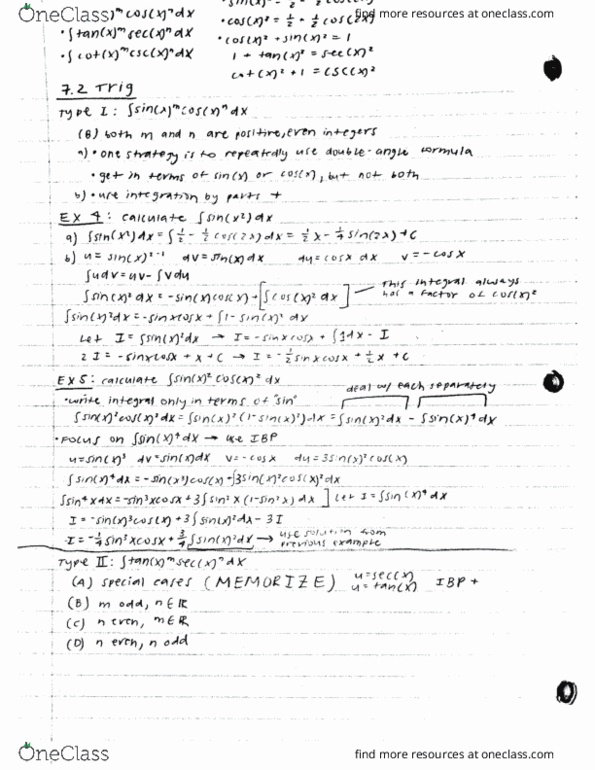 OneClass
find more resources at oneclass.com
)ᵐ cos(x)ⁿdx
• ∫tan(x)ᵐsec(x)ⁿdx
• ∫cot(x)ᵐcsc(x)ⁿdx
• cos(x)² = ½ + ½ cos(2x)
• cos(x)² + sin(x)² = 1
1 + tan(x)² = sec(x)²
cot(x)² + 1 = csc(x)²
7.2 Trig
Type I: ∫sin(x)ᵐcos(x)ⁿdx
(B) both m and n are positive, even integers
a) • one strategy is to repeatedly use double-angle formula
• get in terms of sin(x) or cos(x), but not both
b) • use integration by parts +
EX 4: calculate ∫sin(x²)dx
a) ∫sin(x²)dx = ∫½ - ½ cos(2x)dx = ½x - ¼sin(2x)+C
b) u = sin(x)²⁻¹ dv = sin(x)dx du = cosx dx v = -cosx
∫udv = uv - ∫vdu
∫sin(x)²dx = -sin(x)cos(x) + [∫cos(x)²dx] — This integral always has a factor of cos(x)²
∫sin(x)²dx = -sinxcosx + ∫1-sin(x)² dx
Let I = ∫sin(x)²dx → I = -sinxcosx + ∫1dx - I
2I = -sinxcosx + x + C → I = -½sinxcosx + ½x + C
EX 5: calculate ∫sin(x)²cos(x)²dx
deal w/ each separately
• write integral only in terms of "sin"
∫sin(x)²cos(x)²dx = ∫sin(x)²(1-sin(x)²)dx = ∫sin(x)²dx - ∫sin(x)⁴dx
• Focus on ∫sin(x)⁴dx → use IBP
u = sin(x)³ dv = sin(x)dx v = -cosx du = 3sin(x)²cos(x)
∫sin(x)⁴dx = -sin(x)³cos(x) + ∫3sin(x)²cos(x)²dx
∫sin⁴xdx = -sin³xcosx + 3∫sin²x(1-sin²x)dx] Let I = ∫sin(x)⁴dx
I = -sin(x)³cos(x) + 3∫sin(x)²dx - 3I
I = -¼sin³xcosx + ¾∫sin(x)²dx → use solution from previous example
Type II: ∫tan(x)ᵐsec(x)ⁿdx
(A) special cases (MEMORIZE) u=sec(x) u=tan(x) IBP +
(B) m odd, n∈ℝ
(C) n even, m∈ℝ
(D) m even, n odd
OneClass
find more resources at oneclass.com